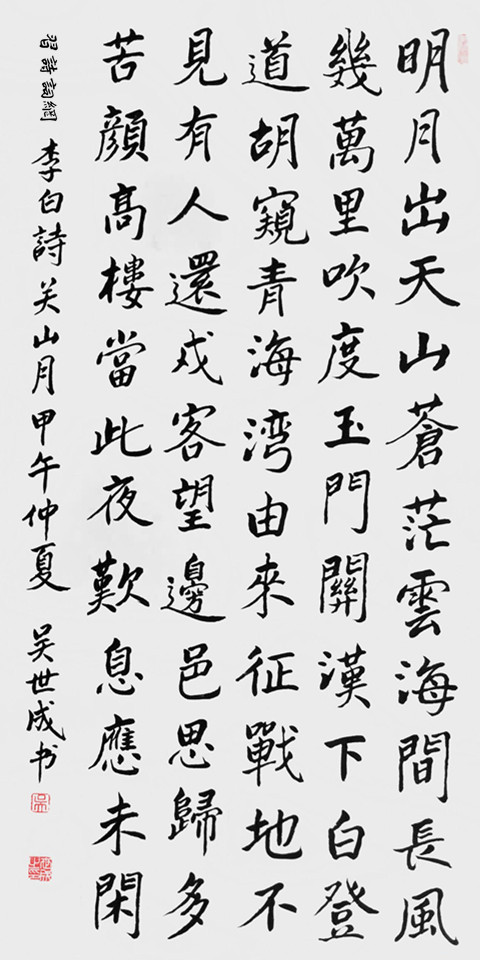 明月出天山蒼茫雲海間長風
幾萬里吹度玉門關漢下白登
道胡窺青海湾由來征戰地不
見有人還戍客望邊邑思歸多
苦顏高樓當此夜歎息應未閑
李白詩关山月甲午仲夏 吴世成书